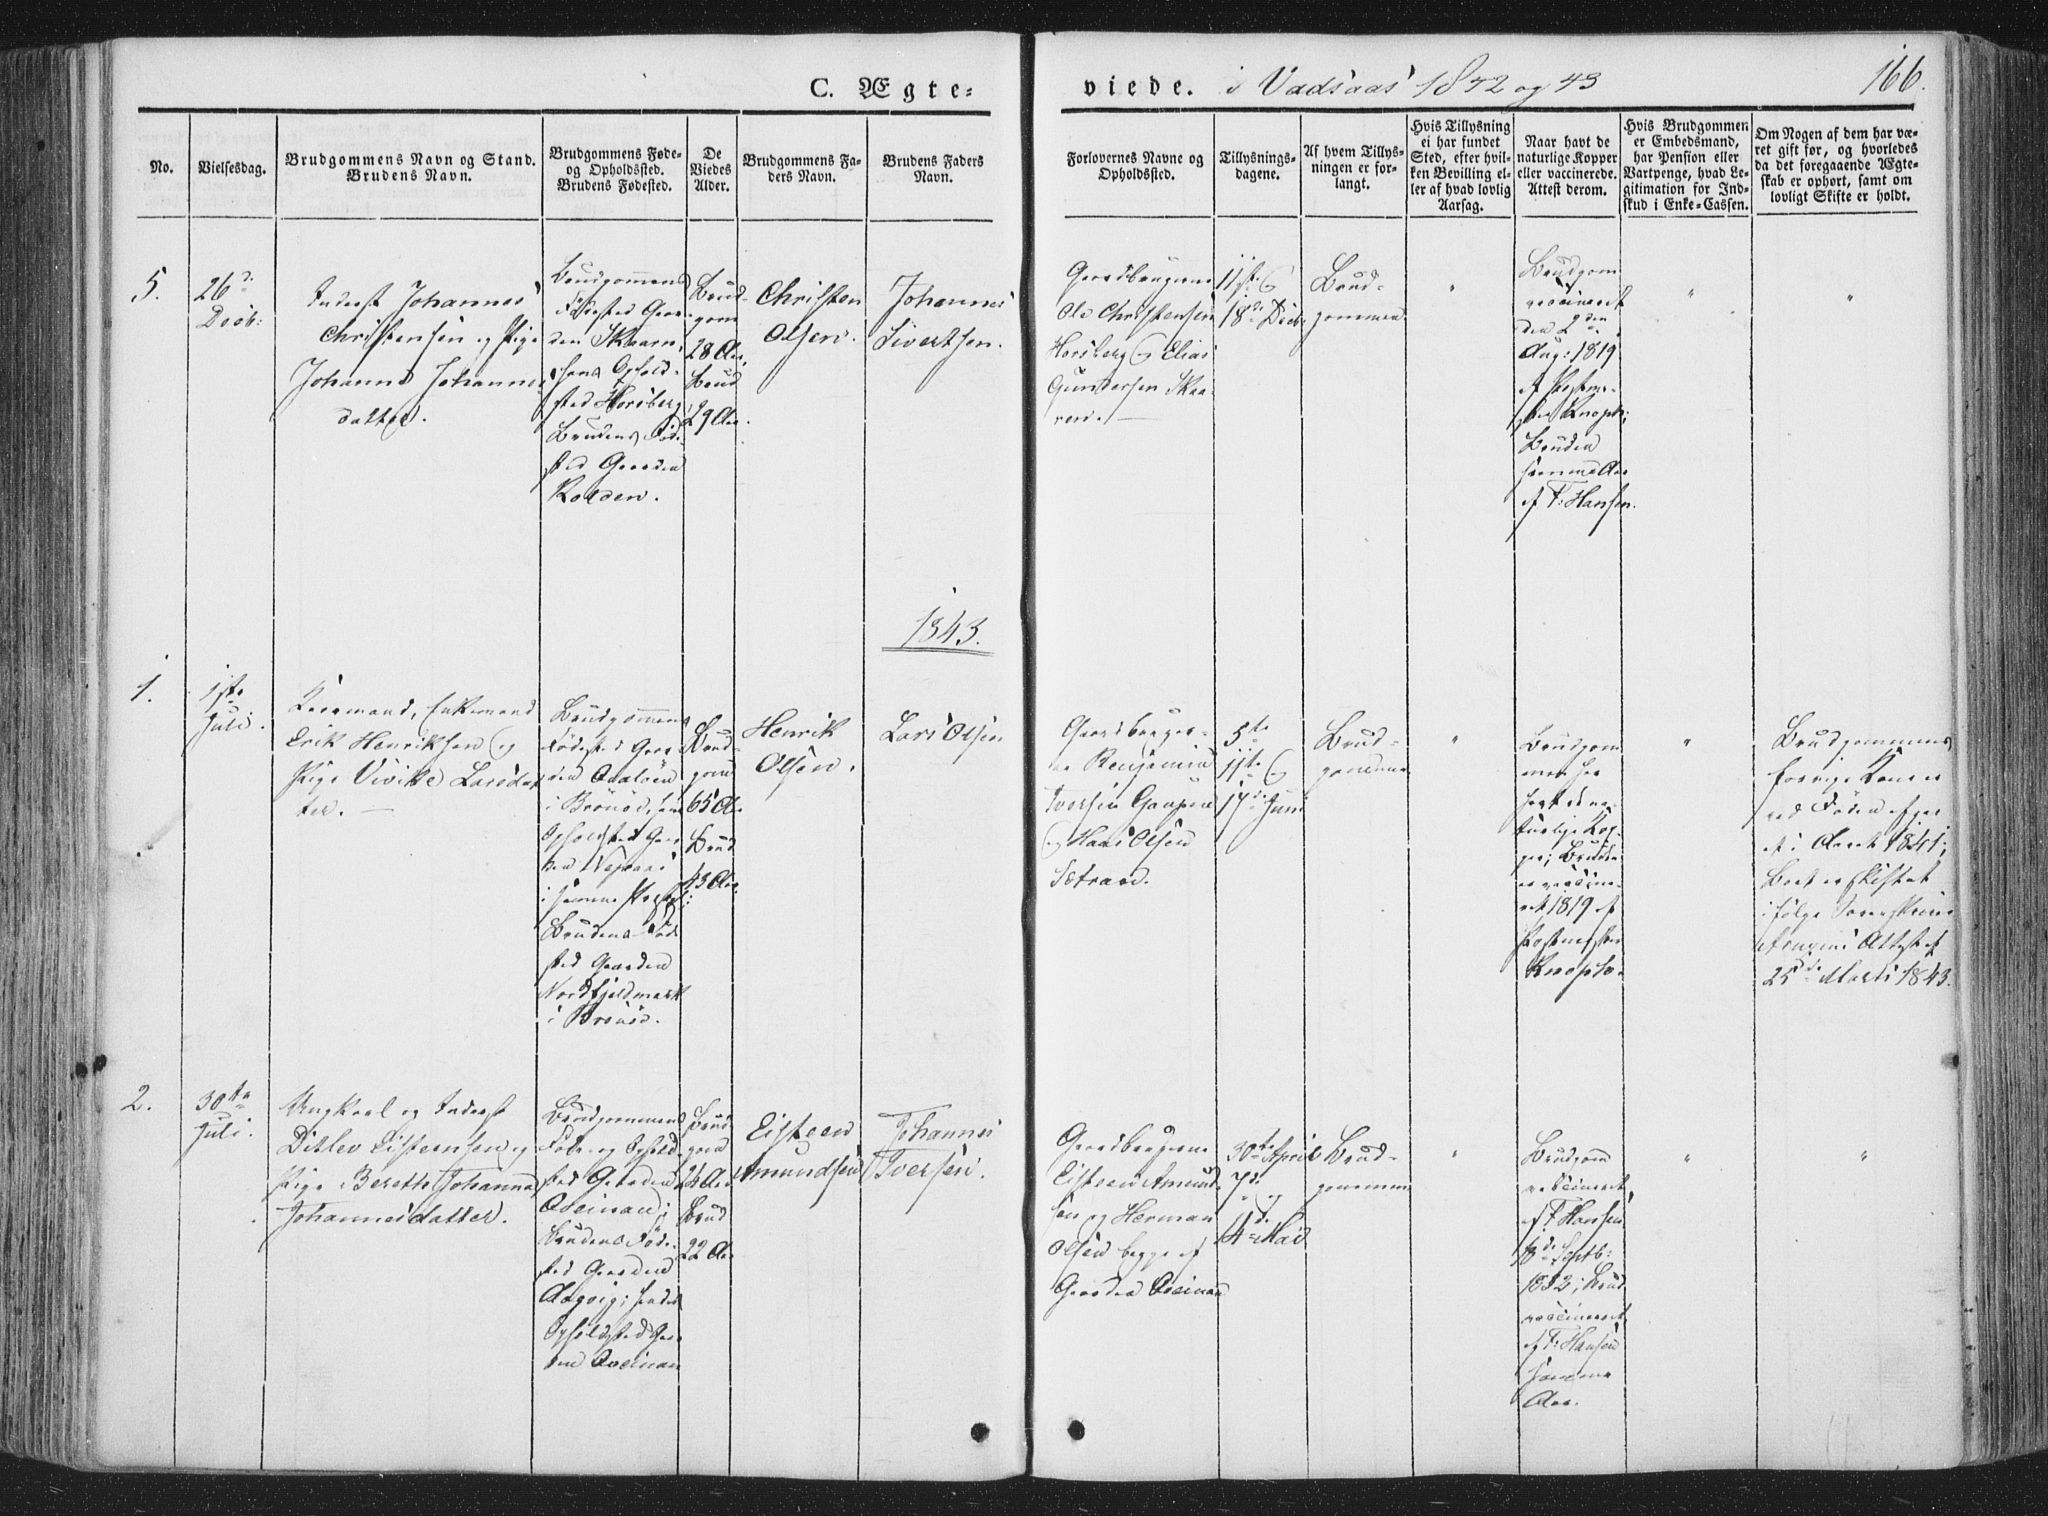 C. Ægte-
viede. i Vadsaas 1842 og 43
166.
No.
Vielsesdag.
Brudgommens Navn og Stand.
Brudens Navn.
Brudgommens Føde-
og Opholdssted.
Brudens Fødested.
De
Viedes
Alder.
Brudgommens Fa-
ders Navn.
Brudens Faders
Navn.
Forlovernes Navne og
Opholdssted.
Tillysnings-
dagene.
Af hvem Tillys-
ningen er for-
langt.
Hvis Tillysning
ei har fundet
Sted, efter hvil-
ken Bevilling el-
ler af hvad lovlig
Aarsag.
Naar havt de
naturlige Kopper
eller vaccinerede.
Attest derom.
Hvis Brudgommen
er Embedsmand,
har Pension eller
Vartpenge, hvad Le-
gitimation for Ind-
skud i Enke-Cassen.
Om Nogen af dem har væ-
ret gift før, og hvorledes
da det foregaaende Ægte-
skab er ophørt, samt om
lovligt Skifte er holdt.
5.
26d:
Decb:
Inderst Johannes
Christensen og Pige
Johanna Johannes
datter.
Brudgommens
Fødested Gaar-
den Skaarn,
hans Ophold-
sted Horsberg
Brudens Fød-
sted Gaarden
Rolden.
Brud-
gom
28 Aar,
Brud
29 Aar.
Christen
Olsen.
Johannes
Sivertsen.
Gaardbrugerne
Ole Christensen
Horsberg og Elias
Gundersen Skaa-
ren.
11te og
18de Decbr
Brud-
gommen
"
Brudgom
vaccineret
den 2den
Aug: 1819
af Postme-
ster Knoph;
Bruden
samme Aar
af F: Hansen.
"
"
1843.
1.
1ste
Juli.
Enkemand
Erik Henriksen og
Pige Vivike Larsdat
ter.
Brudgommens
Fødested Gaar
den
i Brönöe, hans
Opholdsted Gaar
den
i samme Præstgj:
Brudens Fød
sted Gaarden
Nordfjeldmark
i Brönöe.
Brud-
gom
65 Aar
Brud
43 Aar.
Henrik
Olsen.
Lars Olsen
Gaardbruger-
ne Benjamin
Iversen
og Hans Olsen
Sætran.
5te
11te og
17de Juni
Brud-
gommen
"
Brudgom
men har
havt de na-
turlige Kop-
per; Bruden
er vaccine-
ret 1819 af
Postmester
Knoph.
"
Brudgommens
forrige Kone er
ved Døden afgaa
et i Aaret 1841;
Boet er skiftet
ifølge Sorenskriver
Attest af
25de Marts 1843.
2.
30te
Juli.
Ungkarl og Inderst
Ditlev Eisteensen og
Pige Berethe Johanna
Johannesdatter.
Brudgommens
Føde- og Ophold-
sted Gaarden
Qveinan;
Brudens Føde-
sted Gaarden
Aagvig; hendes
Opholdsted Gaar
den Qveinan
Brud
gom
24 Aar
Brud
22 Aar
Eisteen
Amundsen
Johannes
Iversen.
Gaardbrugerne
Eisteen Amund-
sen og Herman
Olsen begge af
Gaarden Qveinan
30te April
7de og
14de Mai
Brud-
gommen
"
Brudgom
vaccineret
af F: Hansen
18de Septb:
1832; Brud
vaccineret
af F: Hansen
samme
Aar.
"
"